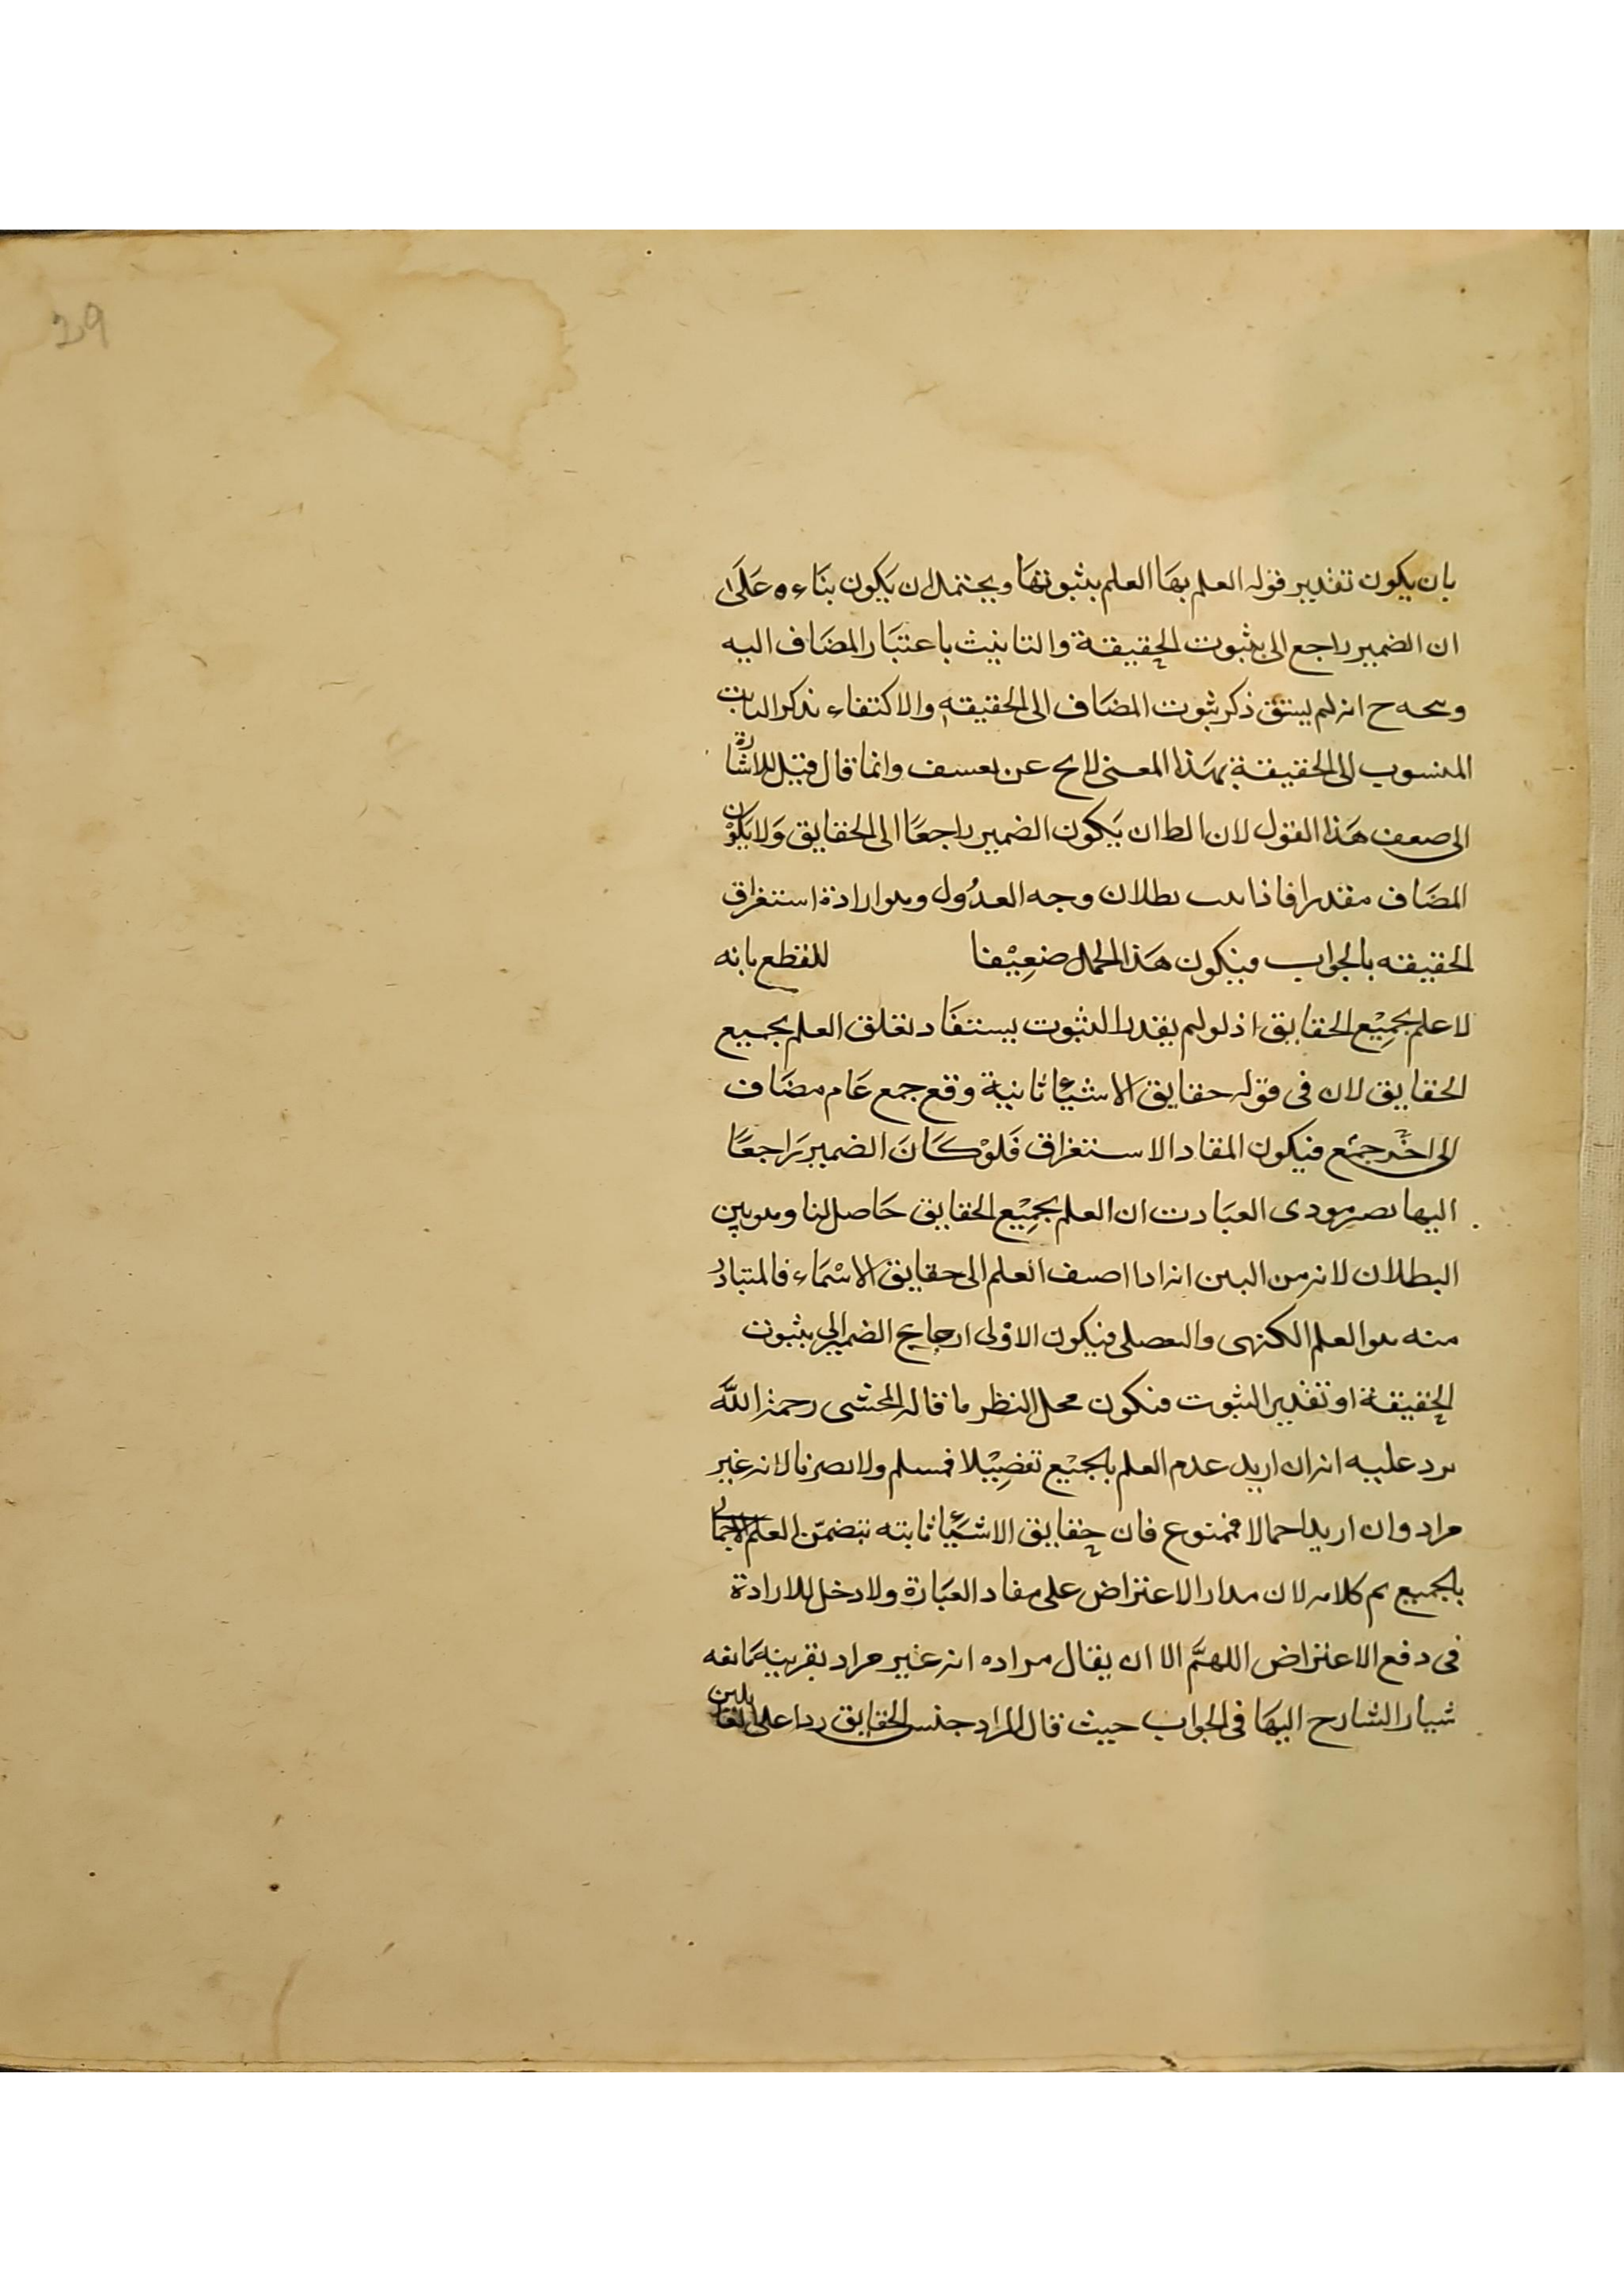 29
بان يكون تقدير قوله العلم بها العلم بثبوتها ويحتمل ان يكون بناءه على
ان الضمير راجع الى بثبوت الحقيقة والتانيث باعتبار المضاف اليه
ح انه لم يسبق ذكر ثبوت المضاف الى الحقيقة والاكتفاء بذكر الثابت
المنسوب الى الحقيقة بهذا المعنى لا يخ عن تعسف وانما قال قيل للاشارة
الى ضعف هذا القول لان الظ ان يكون الضمير راجعا الى الحقايق ولا يكون
المضاف مقدرا فاذا بطلان وجه العدول وهو ارادة استغراق
الحقيقه بالجواب فيكون هذا الحمل ضعيفا للقطع بانه
لا علم بجميع الحقايق اذ لو لم يقدر الثبوت يستفاد تعلق العلم بجميع
الحقايق لان فى قوله حقايق الاشياء ثابتة وقع جمع عام مضاف
الى اخر جمع فيكون المفاد الاستغراق فلو كان الضمير راجعا
اليها يصر مودى العبادت ان العلم بجميع الحقايق حاصل لنا وهو بين
البطلان لانه من البين انه اذا اضيف العلم الى حقايق الاسماء فالمتبادر
منه هو العلم الكنهى والتفصلى فيكون الاولى ارجاع الضمير الى بثبوت
الحقيقة او تقدير الثبوت فيكون محل النظر ما قاله المحشى رحمه الله
يرد عليه انه ان اريد عدم العلم بالجميع تفصيلا فمسلم ولا يضرنا لانه غير
مراد وان اريد اجمالا فممنوع فان حقايق الاشياء ثابته يتضمن العلم الاجمالى
بالجميع تم كلامه لان مدار الاعتراض على مفاد العبارة ولا دخل للارادة
فى دفع الاعتراض اللهم الا ان يقال مراده انه غير مراد بقرينة مانعه
شيار الشارح اليها فى الجواب حيث قال المراد جنس الحقايق ردا على القايلين